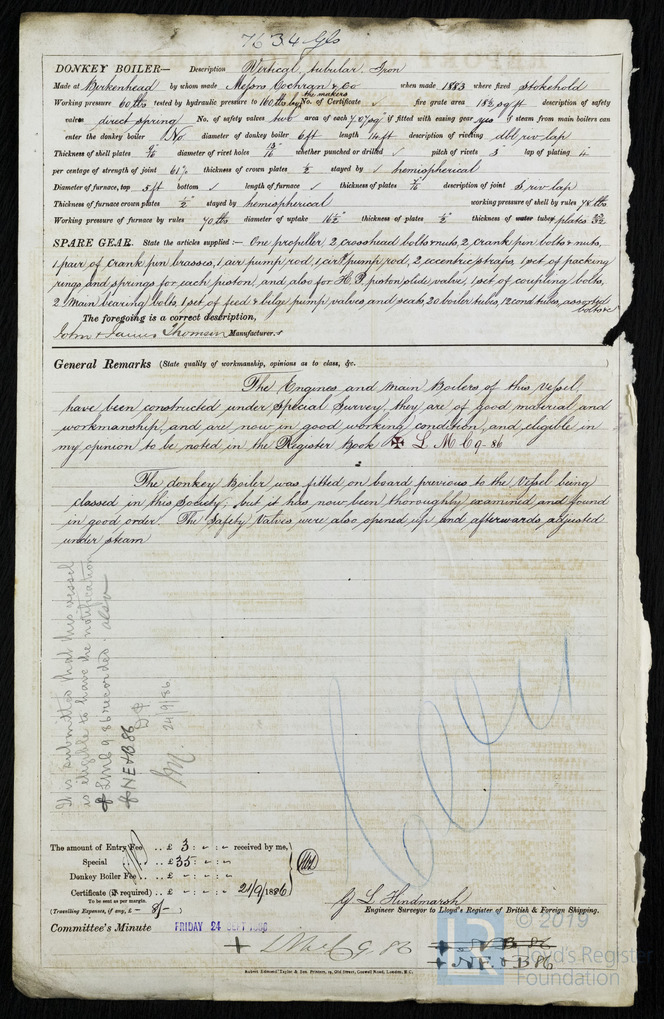 7634 Gls
DONKEY BOILER— Description Vertical, tubular, Iron
Made at Birkenhead by whom made Messrs Cochran & Co when made 1883 where fixed Stokehold
Working pressure 60 lbs tested by hydraulic pressure to 160 lbs by the makers No. of Certificate ✓ fire grate area 18½ sq ft description of safety
valves direct spring No. of safety valves two area of each 7.07 sq" if fitted with easing gear yes if steam from main boilers can
enter the donkey boiler No diameter of donkey boiler 6ft length 14ft description of riveting dbl riv lap
Thickness of shell plates 9/16 diameter of rivet holes 13/16 whether punched or drilled ✓ pitch of rivets 3 lap of plating 4
per centage of strength of joint 61% thickness of crown plates ½ stayed by ✓ hemispherical
Diameter of furnace, top 5ft bottom ✓ length of furnace ✓ thickness of plates description of joint S riv lap
Thickness of furnace crown plates ½ stayed by hemispherical working pressure of shell by rules 78 lbs
Working pressure of furnace by rules 70 lbs diameter of uptake 16½" thickness of plates ½ thickness of water tubes plates
SPARE GEAR. State the articles supplied:— One propeller, 2 crosshead bolts & nuts, 2 crank pin bolts & nuts,
1 pair of crank pin brasses, 1 air pump rod, 1 pump rod, 2 eccentric straps, 1 set of packing
rings and springs for each piston, and also for H.P. piston slide valve, 1 set of coupling bolts,
2 Main bearing bolts, 1 set of feed & bilge pump valves and seats, 20 boiler tubes, 12 cond tubes, assorted
bolts &c
The foregoing is a correct description,
John & James Thomson Manufacturer.s
General Remarks (State quality of workmanship, opinions as to class, &c. )
The Engines and Main Boilers of this Vessel,
have been constructed under Special Survey, they are of good material and
workmanship, and are now in good working condition, and eligible in
my opinion to be noted in the Register Book ✠ L M C 9-86
The donkey Boiler was fitted on board previous to the Vessel being
classed in this Society; but it has now been thoroughly examined and found
in good order. The Safety Valves were also opened up and afterwards adjusted
under steam
It is submitted that this vessel
is eligible to have the notification
✠ LMC 9.86 recorded. also
✠ NE & B.86
24/9/86
The amount of Entry Fee .. £ 3 : - : - received by me,
Special .. .. £ 35 : - : -
Donkey Boiler Fee .. £ - : - : -
Certificate (if required) .. £ - : - : - 21/9/1886
To be sent as per margin.
(Travelling Expenses, if any, £ - 8/- )
G L Hindmarsh
Engineer Surveyor to Lloyd's Register of British & Foreign Shipping.
Committee's Minute FRIDAY 24 SEPT 1886
+ LMC 9.86
+ N B 86
+ NE & B 86
© 2019
LR
Lloyd's Register
Foundation